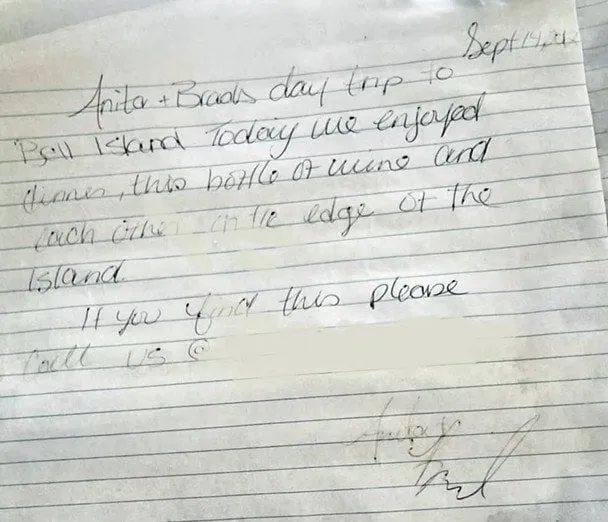 Sept 14, 
Anita + Brads day trip to
Bell Island Today we enjoyed
dinner, this bottle of wine and
each other on the edge of the
Island.
If you find this please
Call us @
Anita &
Brad